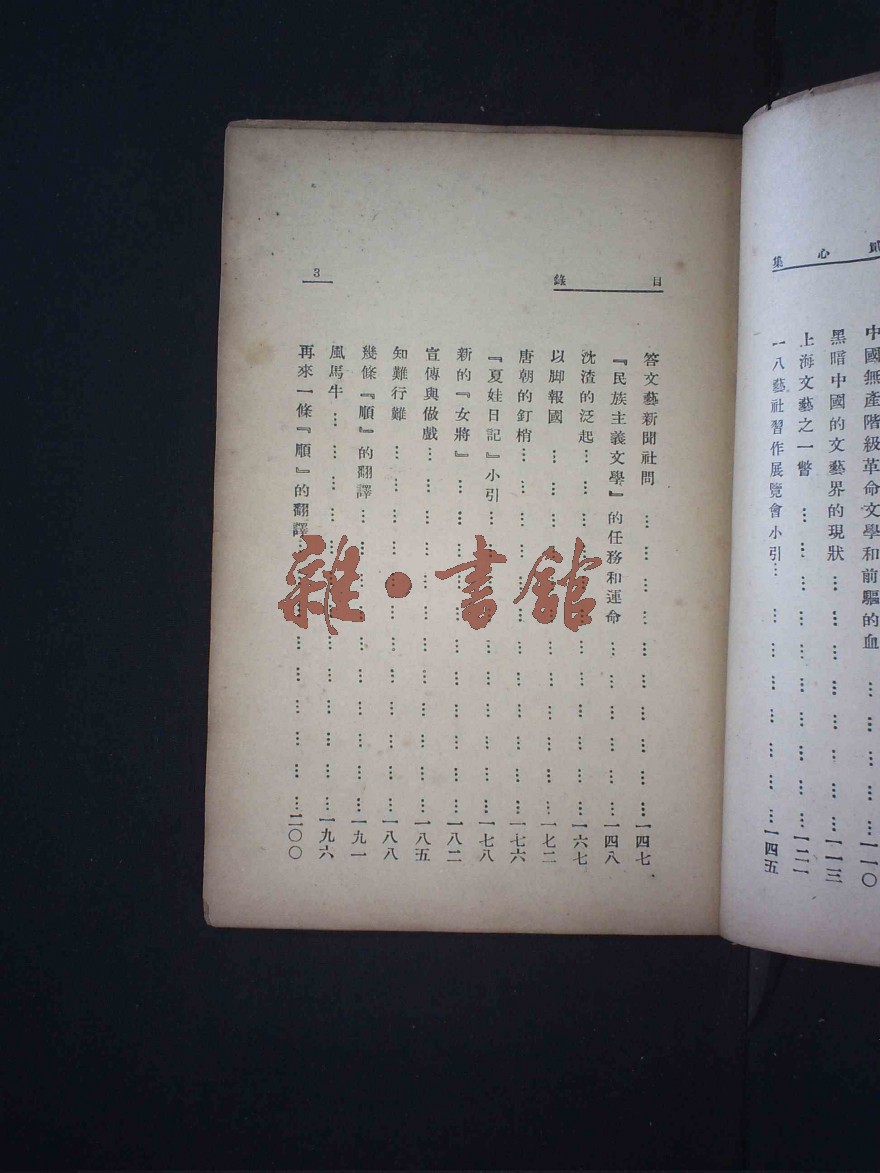 心集
中國無產階級革命文學和前驅的血 … … … … …一一〇
黑暗中國的文藝界的現狀 … … … … … … … …一一三
上海文藝之一瞥 … … … … … … … … … …一二一
一八藝社習作展覽會小引… … … … … … … …一四五
目錄
3
答文藝新聞社問 … … … … … … … … … …一四七
『民族主義文學』的任務和運命 … … … … … …一四八
沈渣的泛起… … … … … … … … … … … …一六七
以脚報國 … … … … … … … … … … … …一七二
唐朝的釘梢… … … … … … … … … … … …一七六
『夏娃日記』小引… … … … … … … … … …一七八
新的『女將』 … … … … … … … … … … …一八二
宣傳與做戲… … … … … … … … … … … …一八五
知難行難 … … … … … … … … … … … …一八八
幾條『順』的翻譯… … … … … … … … … …一九一
風馬牛 … … … … … … … … … … … … …一九六
再來一條『順』的翻譯… … … … … … … … …二〇〇
雜·書館